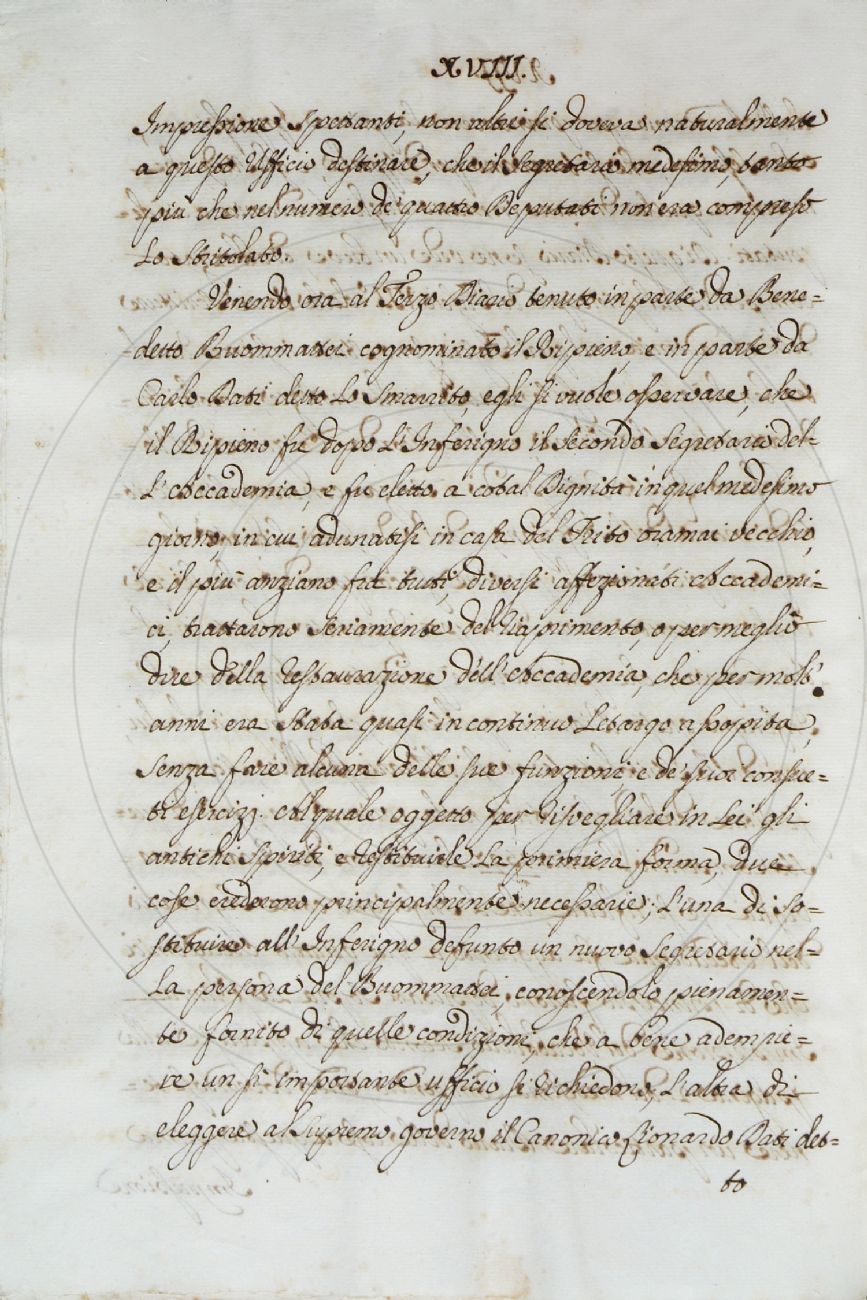 XVIII.
Impressione spettanti, non altri si doveva naturalmente
a questo Ufficio destinare, che il Segretario medesimo, tanto
più che nel numero de' quattro Deputati non era compreso
Lo Stritolato.
Venendo ora al Terzo Diario tenuto in parte da Bene=
detto Buommattei cognominato il Ripieno, e in parte da
Carlo Dati detto Lo Smarrito, egli si vuole osservare, che
il Ripieno fu dopo L'Inferigno il Secondo Segretario del=
L'Accademia, e fu eletto a cotal Dignità in quel medesimo
giorno, in cui adunatisi in casa del Trito oramai vecchio,
e il più anziano fra tutti, diversi affezionati Accademi=
ci, trattarono seriamente del Riaprimento, o per meglio
dire della restaurazione dell'Accademia, che per molt'
anni era stata quasi in continuo Letargo assopita,
senza fare alcuna delle sue funzioni, e de' suoi consue=
ti esercizj. Al quale oggetto per risvegliare in Lei gli
antichi Spiriti, e restituirle La primiera forma, due
cose crederono principalmente necessarie; L'una di so=
stituire all'Inferigno defunto un nuovo Segretario nel=
La persona del Buommattei, conoscendolo pienamen=
te fornito di quelle condizioni, che a bene adempie=
re un sì importante ufficio si richiedono; L'altra di
eleggere al Supremo governo il Canonico Lionardo Dati det=
to